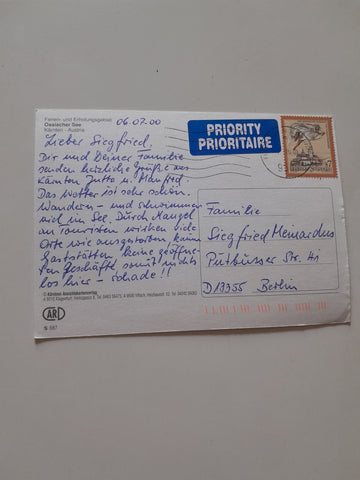 Ferien- und Erholungsgebiet
Ossiacher See
Kärnten - Austria
06.07.00
PRIORITY
PRIORITAIRE
Lieber Siegfried,
Dir und Deiner Familie
senden herzliche Grüße aus
Kärnten Jutta u. Manfred.
Das Wetter ist sehr schön.
Wandern - und schwimmen
sind im See. Durch Mangel
an Touristen wirken viele
Orte wie ausgestorben keine
Gaststätten keine geöffne-
ten Geschäfte somit nichts
los hier - schade!!
Familie
Siegfried Memardus
Putbusser Str. 41
D 13355 Berlin
© Kärntner Ansichtskartenverlag
ARI
S 587